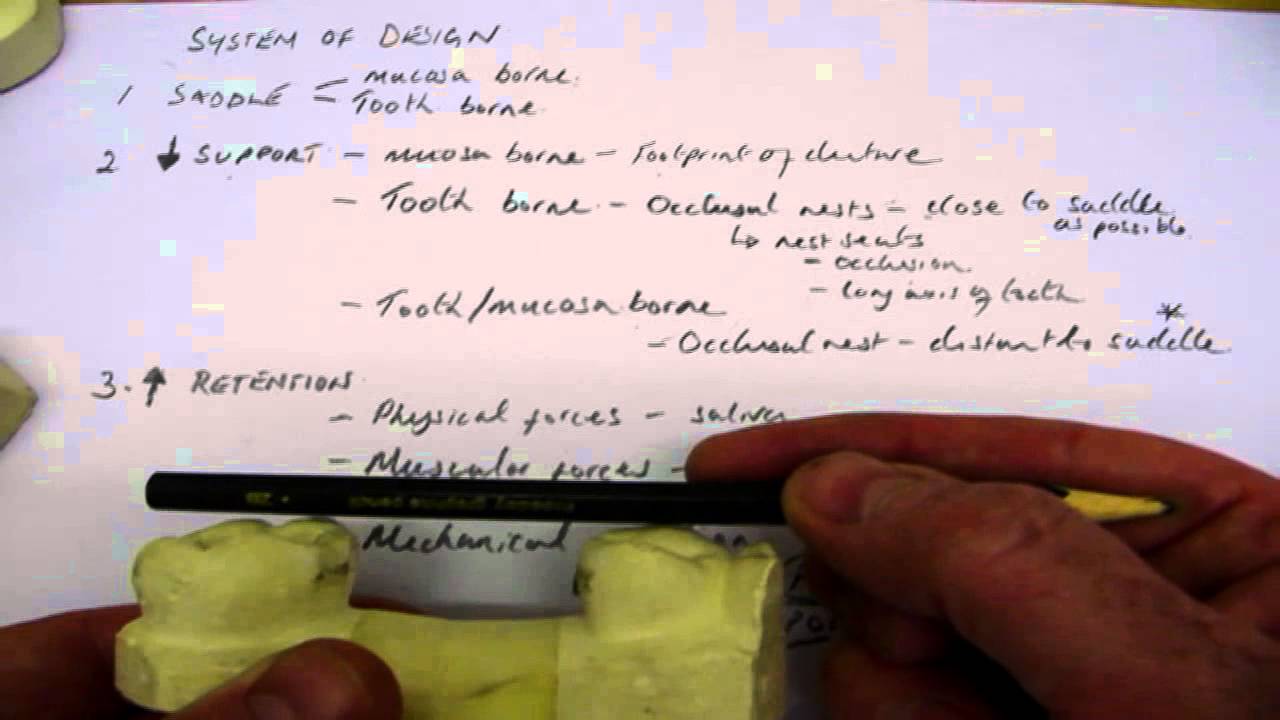 SYSTEM OF DESIGN
1 SADDLE = mucosa borne.
Tooth borne
2 ↓ SUPPORT - mucosa borne - Footprint of denture
- Tooth borne - Occlusal rests - close to saddle
as possible.
↳ rest seats
- occlusion.
- long axis of tooth
- Tooth/mucosa borne
*
- Occlusal rest - distant to saddle.
3. ↑ RETENTION
- Physical forces - saliva
- Muscular forces -
Mechanical